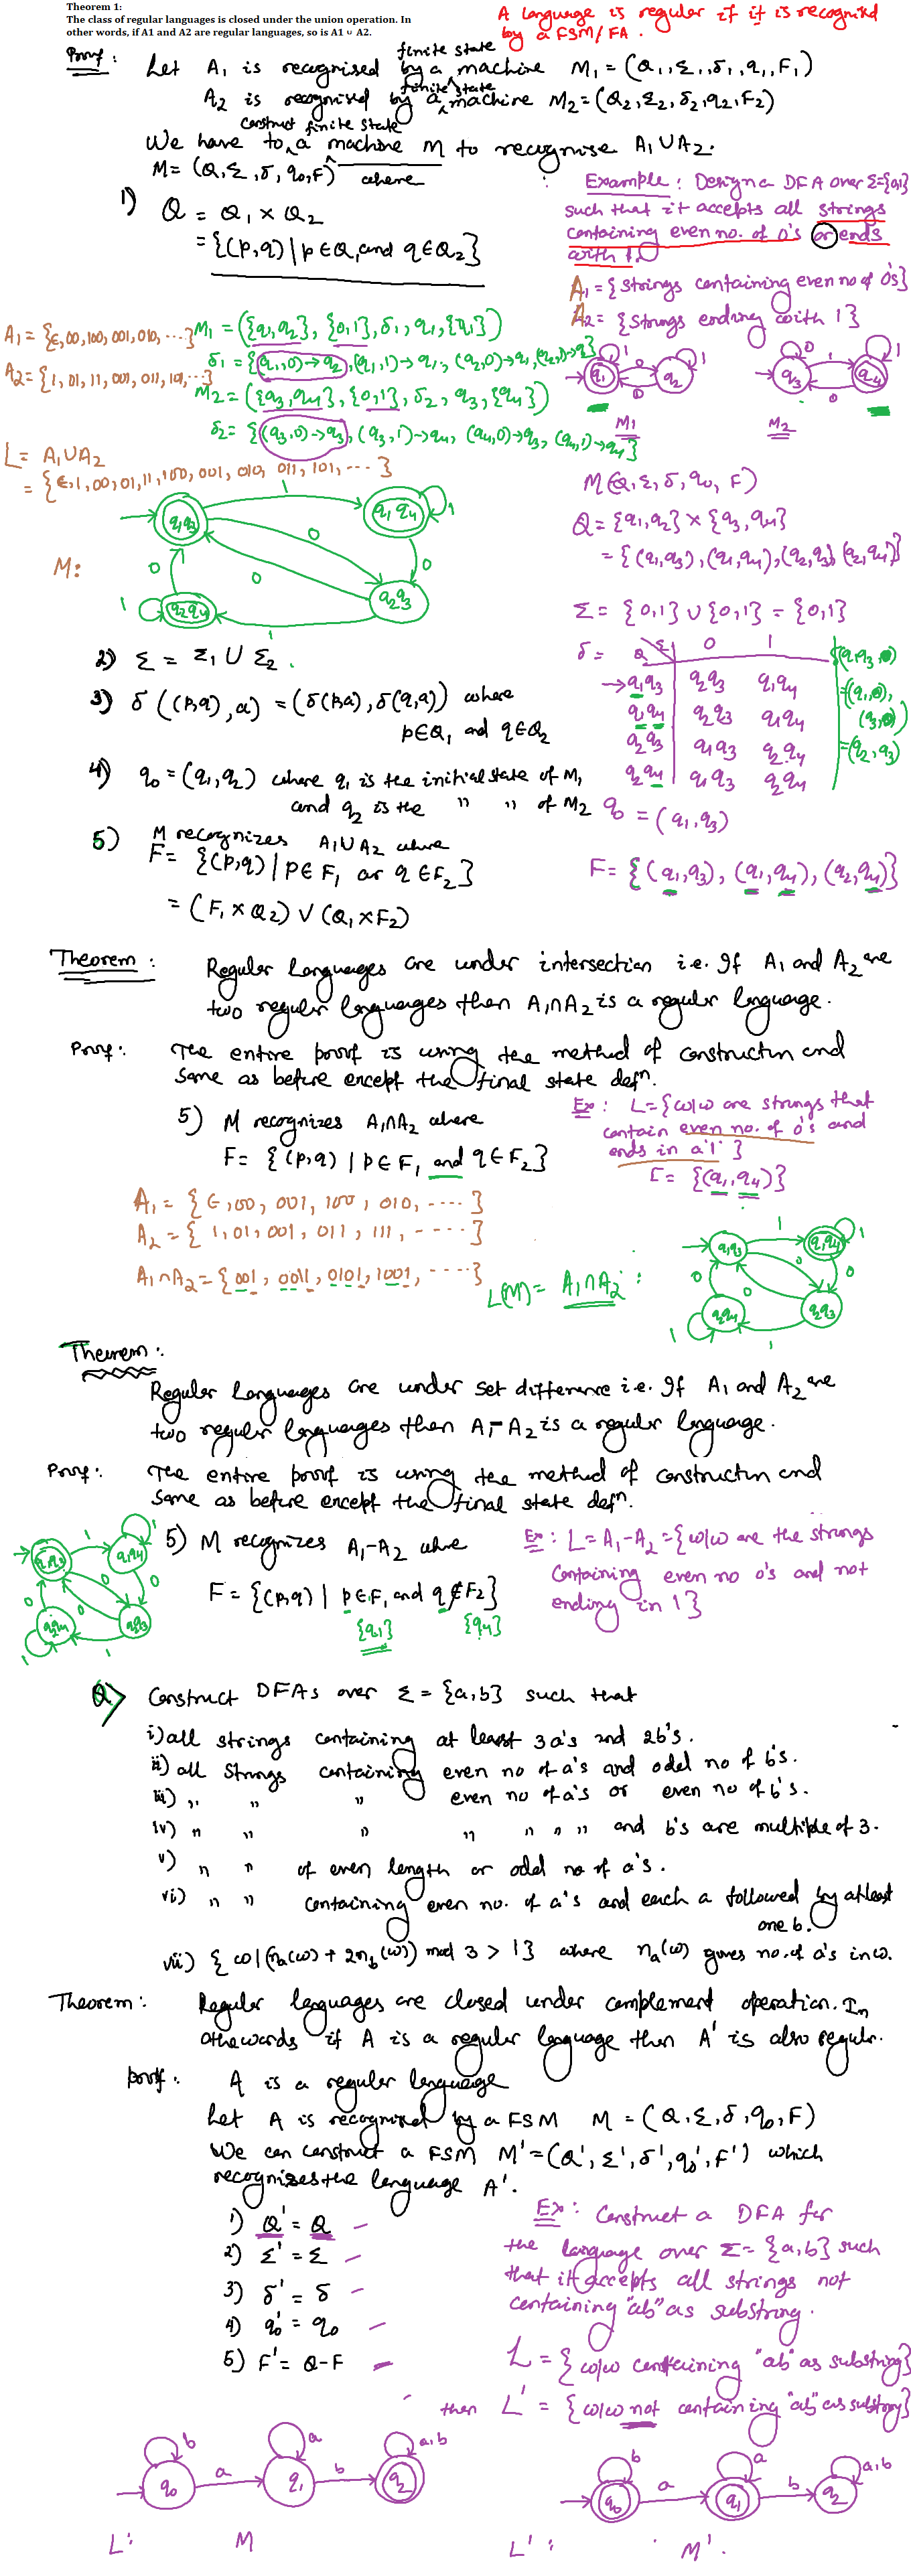 Theorem 1:
The class of regular languages is closed under the union operation. In
other words, if A1 and A2 are regular languages, so is A1 ∪ A2.
A language is regular if it is recognized
by a FSM/FA.
Proof:
Let A₁ is recognised by a finite state machine M₁ = (Q₁, Σ₁, δ₁, q₁, F₁)
A₂ is recognised by a finite state machine M₂ = (Q₂, Σ₂, δ₂, q₂, F₂)
We have to construct a finite state machine M to recognise A₁∪A₂.
M = (Q, Σ, δ, q₀, F) where
1) Q = Q₁ × Q₂
= {(p,q) | p∈Q₁ and q∈Q₂}
Example: Design a DFA over Σ={0,1}
such that it accepts all strings
containing even no. of 0's or ends
with 1.
A₁ = {strings containing even no of 0's}
A₂ = {strings ending with 1}
A₁ = {ϵ, 00, 100, 001, 010, ...}
A₂ = {1, 01, 11, 001, 011, 101, ...}
M₁ = ({q₁,q₂}, {0,1}, δ₁, q₁, {q₁})
δ₁ = {(q₁,0)→q₂, (q₁,1)→q₁, (q₂,0)→q₁, (q₂,1)→q₂}
M₂ = ({q₃,q₄}, {0,1}, δ₂, q₃, {q₄})
δ₂ = {(q₃,0)→q₃, (q₃,1)→q₄, (q₄,0)→q₃, (q₄,1)→q₄}
q₁ q₂ 1 1 0 0
M₁
q₃ q₄ 0 1 1 0
M₂
L = A₁∪A₂
= {ϵ, 1, 00, 01, 11, 100, 001, 010, 011, 101, ...}
M:
q₁q₃ 1 q₁q₄ 1
0 0 0 0
1 q₂q₄ 1 q₂q₃
M(Q, Σ, δ, q₀, F)
Q = {q₁,q₂} × {q₃,q₄}
= {(q₁,q₃), (q₁,q₄), (q₂,q₃), (q₂,q₄)}
Σ = {0,1} ∪ {0,1} = {0,1}
δ = Q Σ 0 1
→ q₁q₃ q₂q₃ q₁q₄
q₁q₄ q₂q₃ q₁q₄
q₂q₃ q₁q₃ q₂q₄
q₂q₄ q₁q₃ q₂q₄
=(q₂,q₃)
q₀ = (q₁,q₃)
F = {(q₁,q₃), (q₁,q₄), (q₂,q₄)}
2) Σ = Σ₁ ∪ Σ₂.
3) δ((p,q),a) = (δ(p,a), δ(q,a)) where
p∈Q₁ and q∈Q₂
4) q₀ = (q₁,q₂) where q₁ is the initial state of M₁
and q₂ is the " " of M₂
5) M recognizes A₁∪A₂ where
F = {(p,q) | p∈F₁ or q∈F₂}
= (F₁×Q₂) ∪ (Q₁×F₂)
Theorem:
Regular languages are under intersection i.e. If A₁ and A₂ are
two regular languages then A₁∩A₂ is a regular language.
Proof: The entire proof is using the method of construction and
same as before except the final state defⁿ.
5) M recognizes A₁∩A₂ where
F = {(p,q) | p∈F₁ and q∈F₂}
Ex: L = {w|w are strings that
contain even no. of 0's and
ends in a '1'}
F = {(q₁,q₄)}
A₁ = {ϵ, 00, 001, 100, 010, ....}
A₂ = {1, 01, 001, 011, 111, ....}
A₁∩A₂ = {001, 0011, 0101, 1001, ....}
L(M) = A₁∩A₂:
q₁q₃ 1 q₁q₄ 1
0 0 0 0
1 q₂q₄ 1 q₂q₃
Theorem:
Regular languages are under set difference i.e. If A₁ and A₂ are
two regular languages then A₁-A₂ is a regular language.
Proof: The entire proof is using the method of construction and
same as before except the final state defⁿ.
5) M recognizes A₁-A₂ where
F = {(p,q) | p∈F₁ and q∉F₂}
{q₁} {q₄}
q₁q₃ 1 q₁q₄ 1
0 0 0 0
1 q₂q₄ 1 q₂q₃
Ex: L = A₁-A₂ = {w|w are the strings
containing even no 0's and not
ending in 1}
Q) Construct DFAs over Σ = {a,b} such that
i) all strings containing at least 3 a's and 2 b's.
ii) all strings containing even no of a's and odd no of b's.
iii) " " " even no of a's or even no of b's.
iv) " " " " " " " and b's are multiple of 3.
v) " " of even length or odd no of a's.
vi) " " containing even no. of a's and each a followed by atleast
one b.
vii) {w|(nₐ(w) + 2n_b(w)) mod 3 > 1} where nₐ(w) gives no. of a's in w.
Theorem: Regular languages are closed under complement operation. In
otherwords if A is a regular language then A' is also regular.
proof: A is a regular language
Let A is recognized by a FSM M = (Q, Σ, δ, q₀, F)
We can construct a FSM M' = (Q', Σ', δ', q₀', F') which
recognizes the language A'.
1) Q' = Q
2) Σ' = Σ
3) δ' = δ
4) q₀' = q₀
5) F' = Q-F
Ex: Construct a DFA for
the language over Σ = {a,b} such
that it accepts all strings not
containing "ab" as substring.
L = {w|w containing "ab" as substring}
then L' = {w|w not containing "ab" as substring}
b a a,b
q₀ a q₁ b q₂
L: M
b a a,b
q₀ a q₁ b q₂
L': M'.